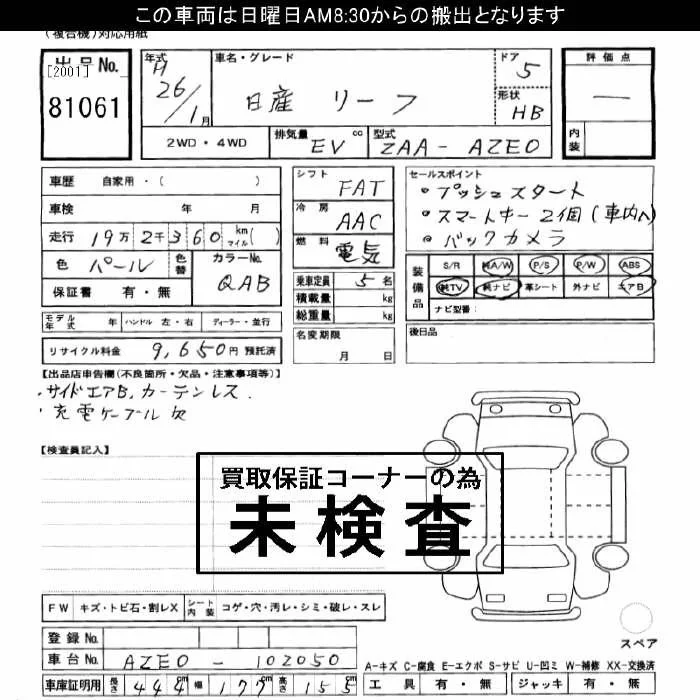 この車両は日曜日AM8:30からの搬出となります
(複合機)対応用紙
出品No. [2001] 81061
年式 H 26/1月
車名・グレード 日産 リーフ
ドア 5
形状 HB
評価点 —
内装
2WD・4WD
排気量 EV cc
型式 ZAA-AZE0
車歴 自家用・( )
車検 年 月
走行 19万2千360 km マイル( )
色 パール 色替
カラーNo. QAB
保証書 有・無
シフト FAT
冷房 AAC
燃料 電気
乗車定員 5名
積載量 kg
総重量 kg
名変期限 月 日
セールスポイント
・プッシュスタート
・スマートキー2個(車内へ)
・バックカメラ
装備品 S/R 純A/W P/S P/W ABS
純TV 純ナビ 革シート 外ナビ エアB
ナビ型番:
後日品
モデル年式 年 ハンドル 左・右 ディーラー・並行
リサイクル料金 9,650円 預託済
【出品店申告欄(不良箇所・欠品・注意事項等)】
サイドエアB、カーテンレス
充電ケーブル欠
【検査員記入】
買取保証コーナーの為
未検査
FW キズ・トビ石・割レX シート内装 コゲ・穴・汚レ・シミ・破レ・スレ
登録No.
車台No. AZE0-102050
車庫証明用 長さ 444cm 幅 177cm 高さ 155cm
スペア
A-キズ C-腐食 E-エクボ S-サビ U-凹ミ W-補修 XX-交換済
工具 有・無 ジャッキ 有・無